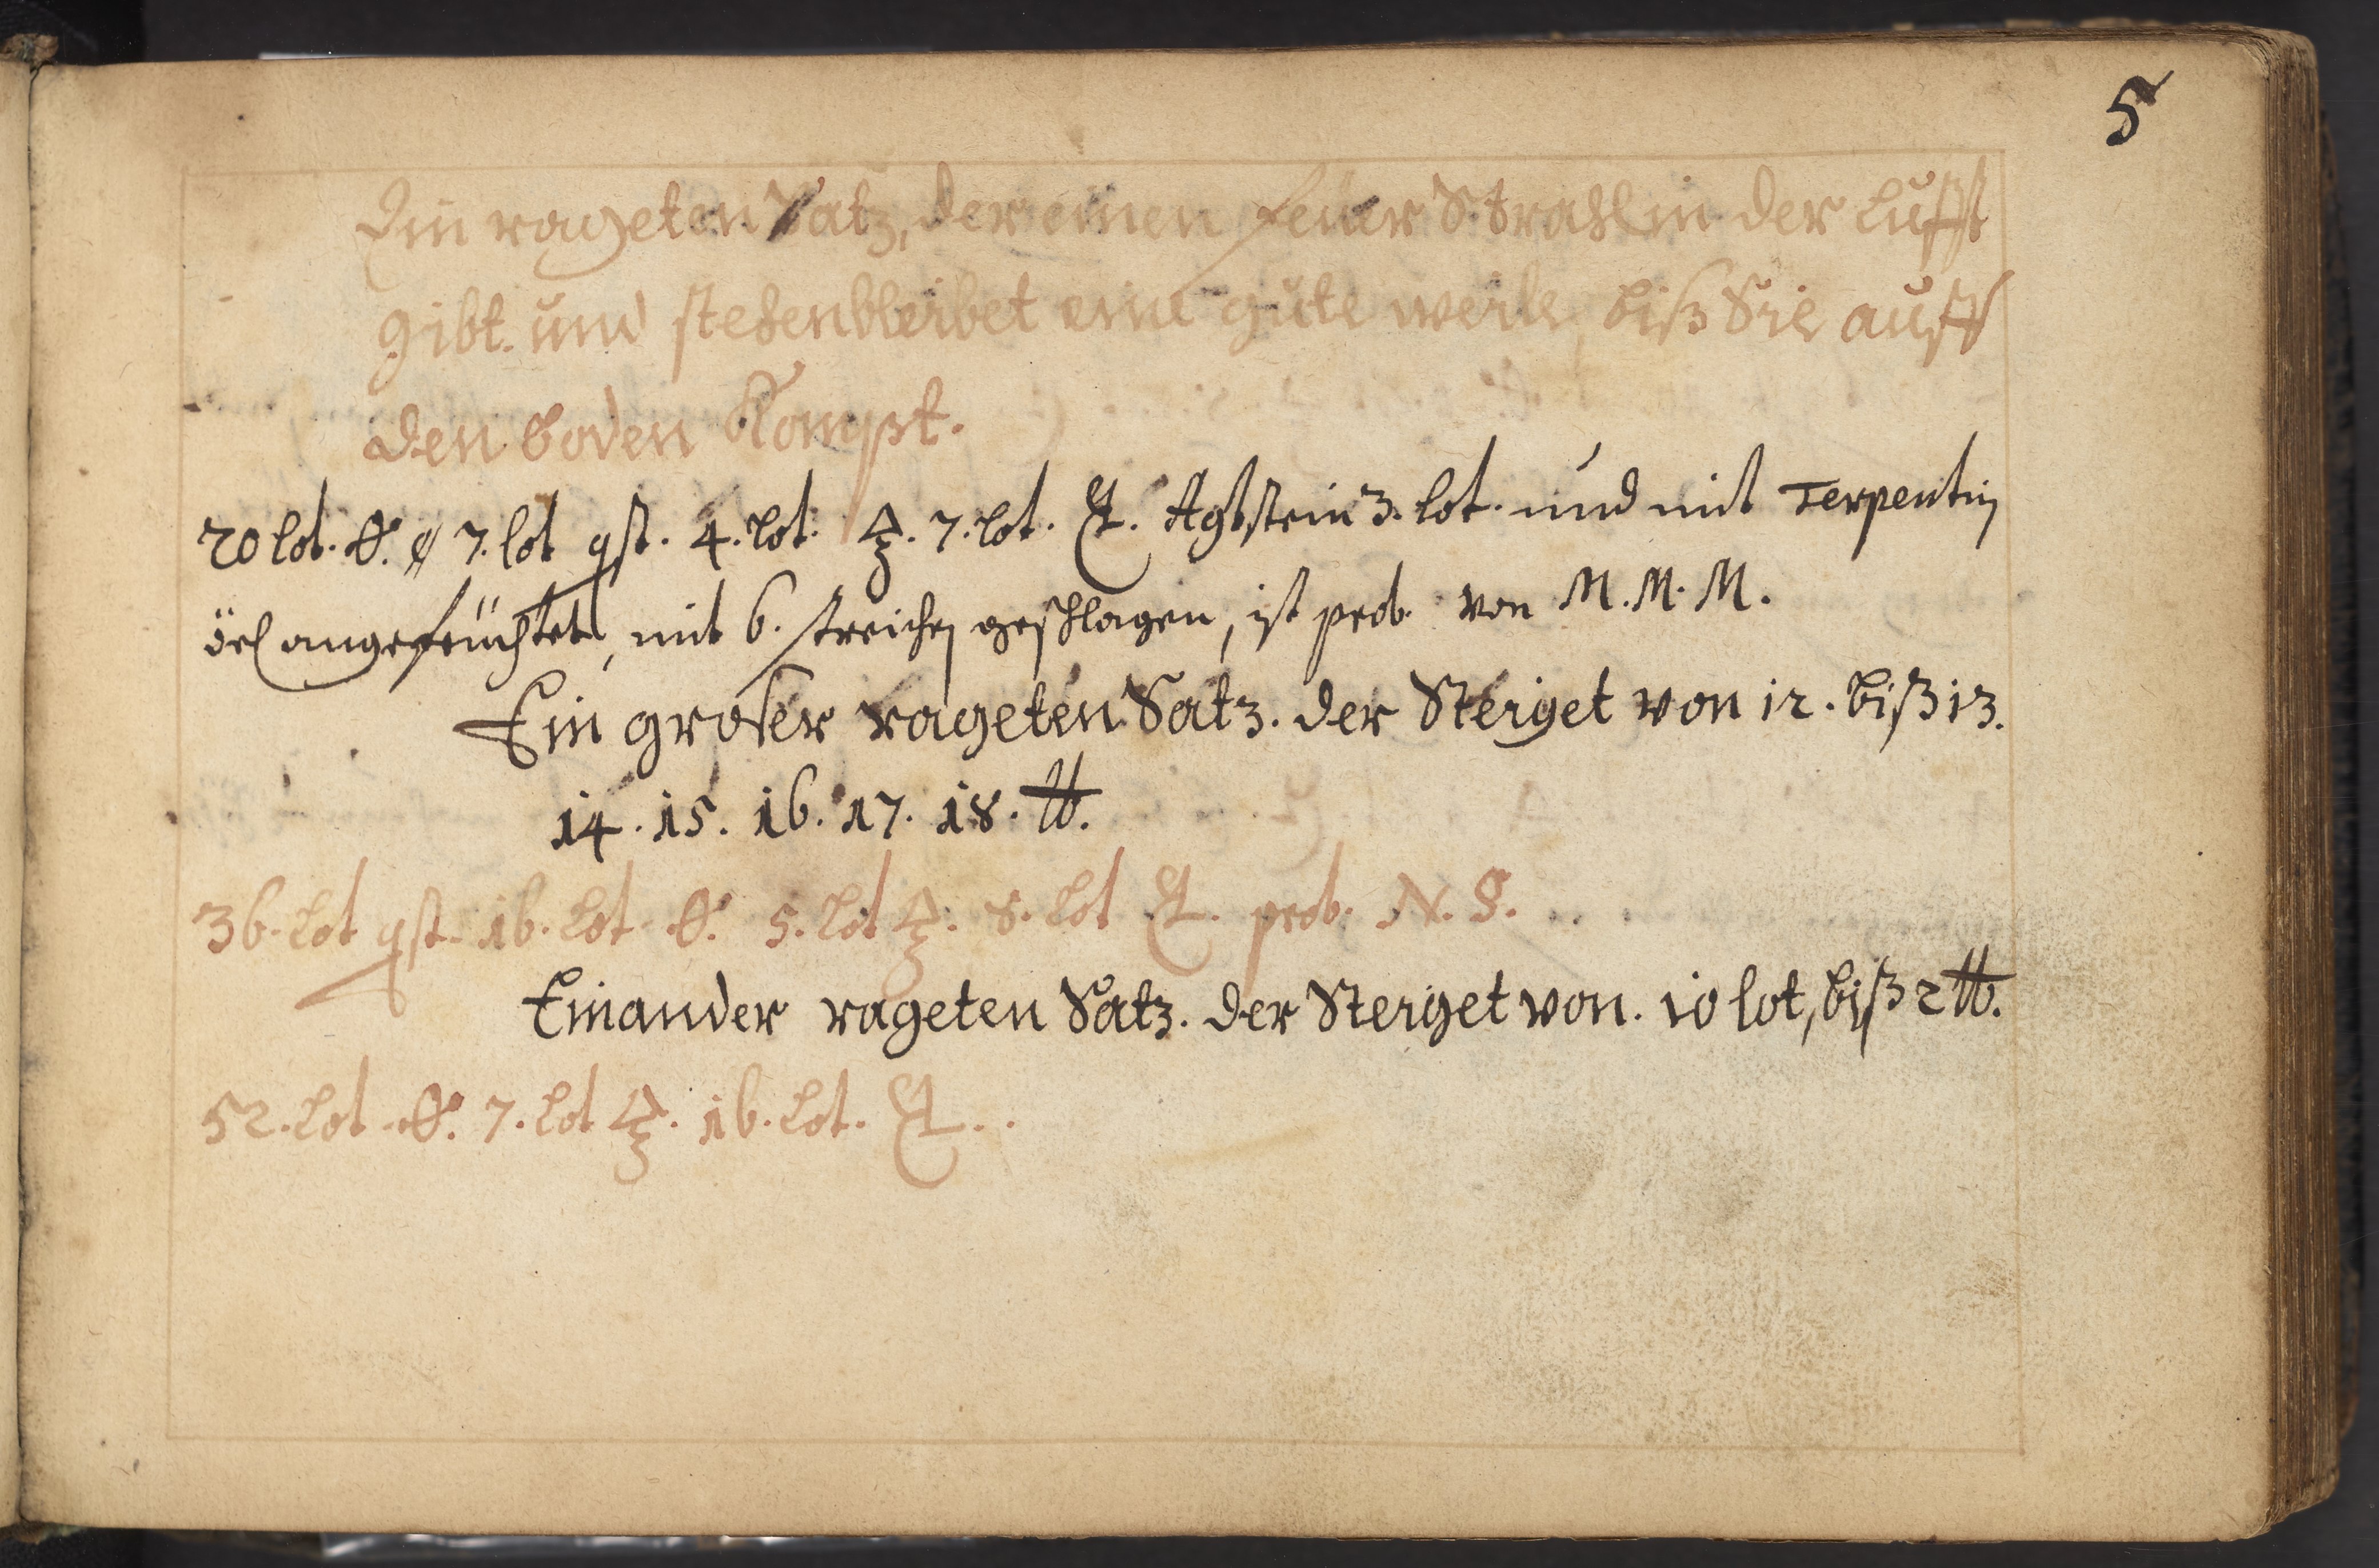 5
Ein rageten Satz, der einen feüer Strahl in der Lufft
gibt. und stehenbleibet eine gute weile, biß Sie auff
den boden Kompt.
20 lot. 7. lot qst. 4. lot. 🜍. 7. lot. Agtstein 3. lot. und mit Terpentin
öel angefeüchtet, mit 6. streichen geschlagen, ist prob. von M. M. M.
Ein großer rageten Satz. der Steiget von 12. biß 13.
14. 15. 16. 17. 18. ℔.
36. Lot qst. 16. Lot. 5. Lot 🜍. 8. Lot prob. N. S.
Ein ander rageten Satz. der Steiget von. 10 lot, biß 2 ℔.
52. Lot. 7. Lot 🜍. 16. Lot.